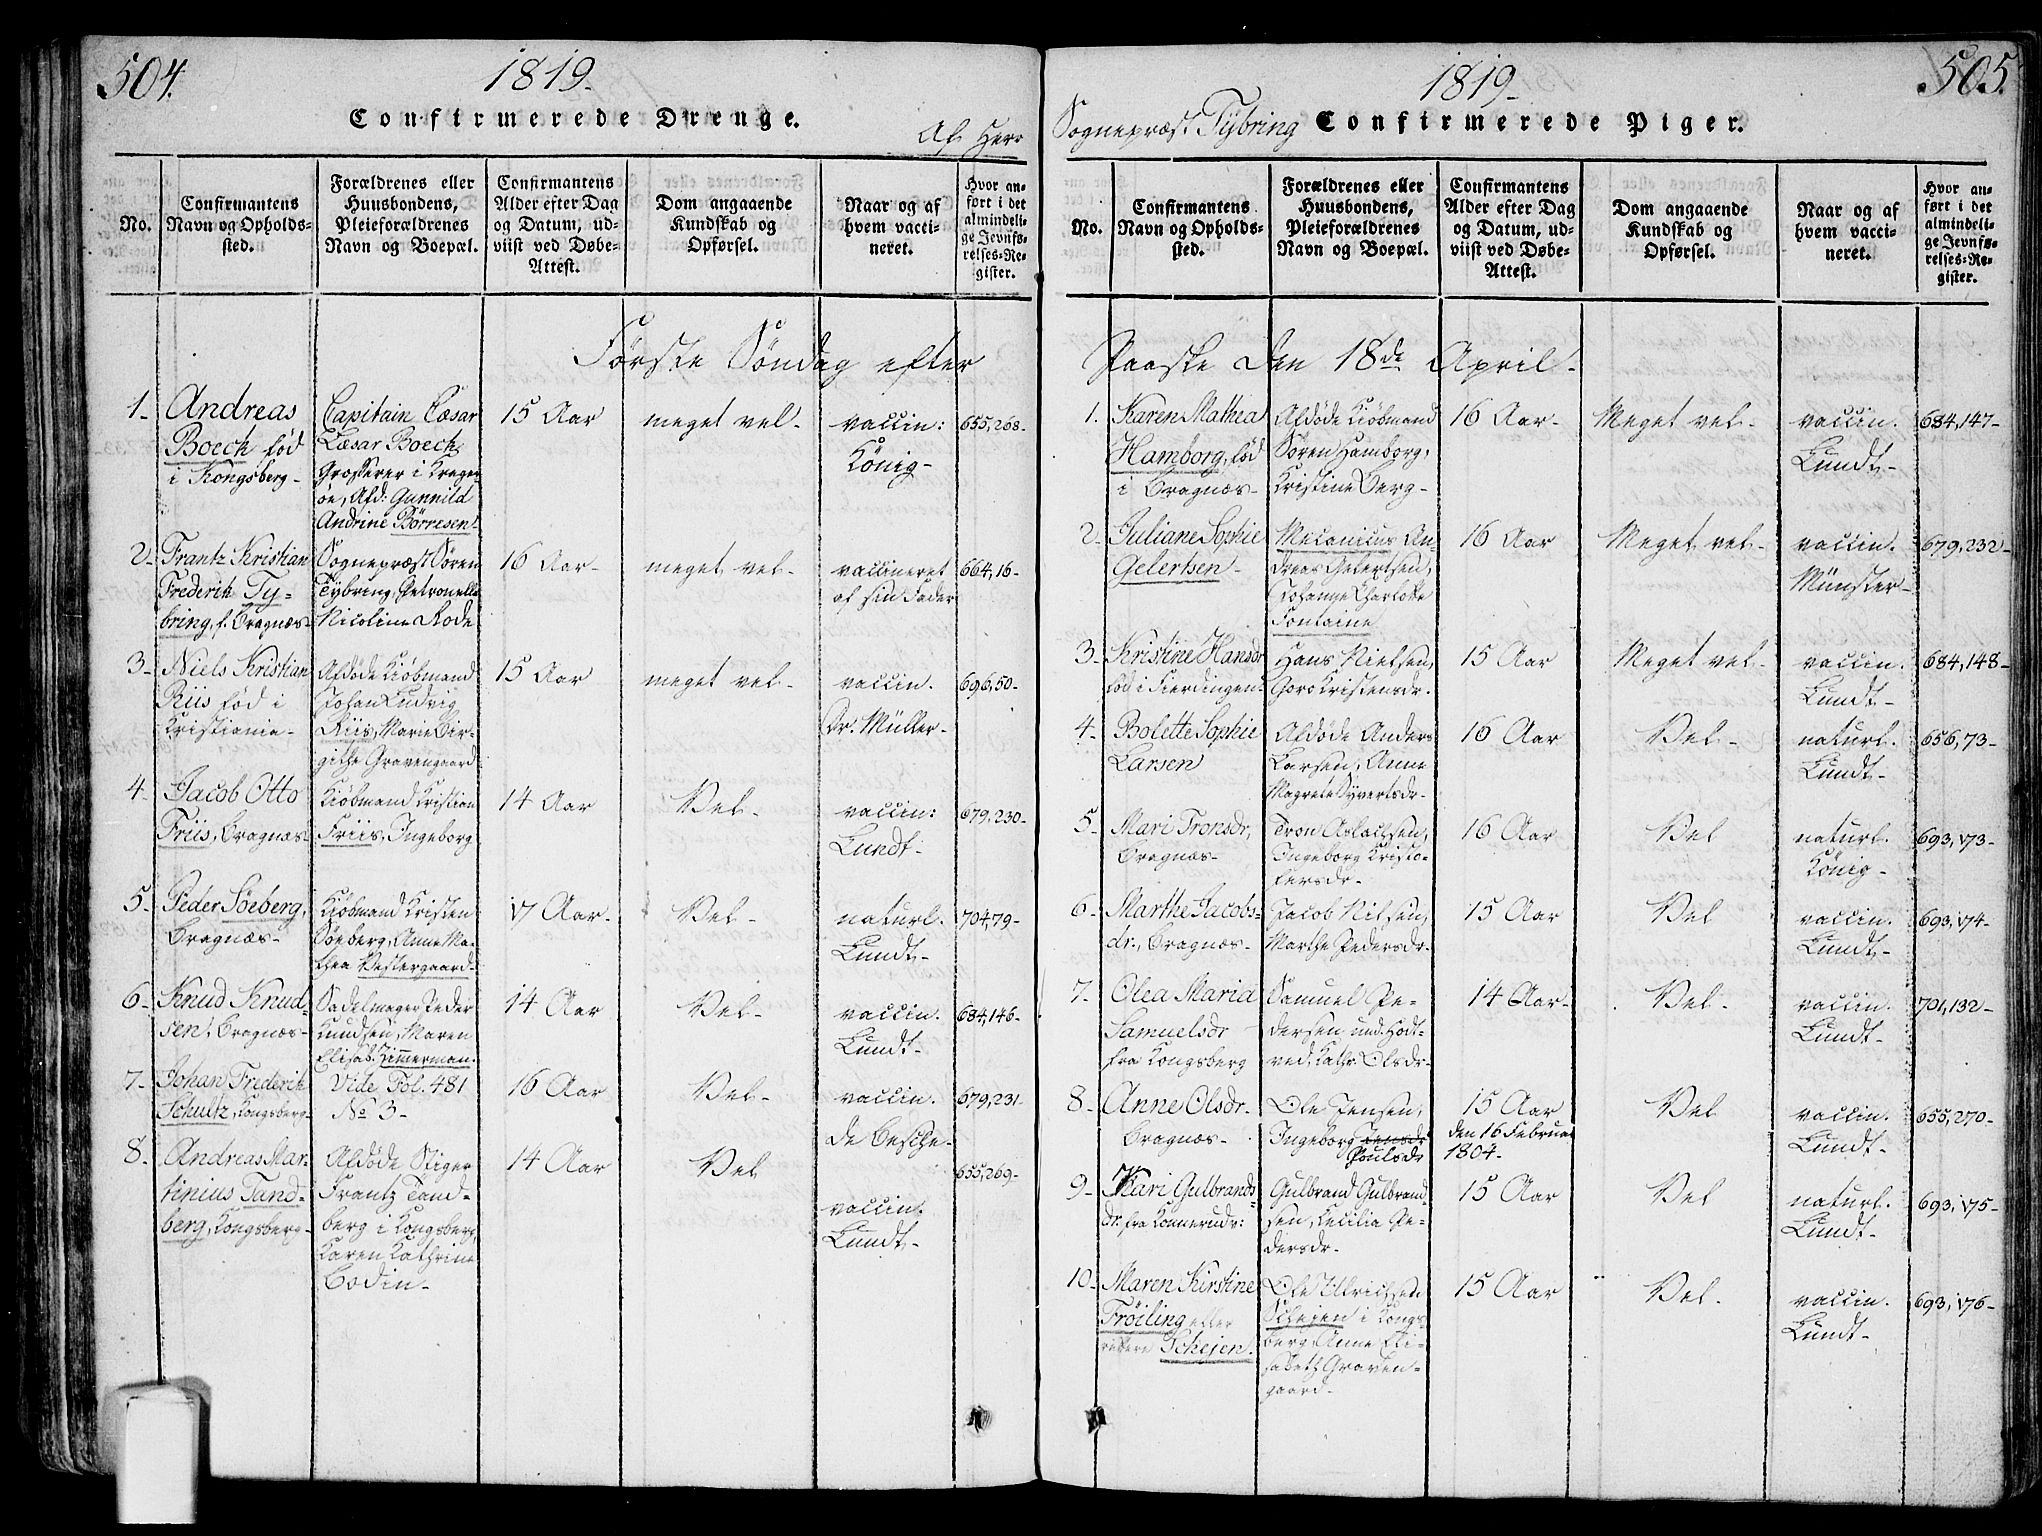 504.
1819.
Confirmerede Drenge.
Af Herr
No.
Confirmantens
Navn og Opholds-
sted.
Forældrenes eller
Huusbondens,
Pleieforældrenes
Navn og Boepæl.
Confirmantens
Alder efter Dag
og Datum, ud-
viist ved Døbe-
Attest.
Dom angaaende
Kundskab og
Opførsel.
Naar og af
hvem vacci-
neret.
Hvor an-
ført i det
almindeli-
ge Jevnfø-
relses-Re-
gister.
Første Søndag efter
1-
Andreas
Boeck fød
i Kongsberg-
Capitain Cæsar
Cæsar Boeck
Grosserer i Krager-
öe, Afd: Gunnild
Andrine Börresen
15 Aar
meget vel-
vaccin:
König-
655,268-
2-
Frantz Kristian
Frederik Ty-
bring, f. Bragnæs-
Sognepræst Sören
Tybring, Petronelle
Nicoline Rode
16 Aar-
meget vel-
vaccineret
af sin Fader
664,16-
3-
Niels Kristian
Riis fød i
Kristiania-
Afdöde Kiöbmand
Johan Ludvig
Riis, Marie Bir-
githe Gravengaard
15 Aar
meget vel-
vaccin.
Dr. Müller-
696,50-
4-
Jacob Otto
Friis, Bragnæs-
Kiöbmand Kristian
Friis, Ingeborg
14 Aar
Vel-
vaccin:
Lundt-
679,230-
5-
Peder Söeberg,
Bragnæs-
Kiöbmand Kristen
Söeberg, Anne Ma-
thea Vestergaard-
17 Aar-
Vel-
naturl.
Lundt-
704,79-
6-
Knud Knud-
sen, Bragnæs-
Sadelmager Peder
Knudsen, Maren
Elisab. Zimmerman.
14 Aar
Vel-
vaccin.
Lundt-
684,146-
7-
Johan Frederik
Schultz, Kongsberg-
Vide, Fol. 481
No 3-
16 Aar
Vel-
vaccin.
de Besche-
679,231-
8-
Andreas Mar-
tinius Tand-
berg, Kongsberg-
Afdöde Stiger
Frantz Tand-
berg i Kongsberg,
Karen Kathrine
Bodin-
14 Aar
Vel
vaccin.
Lundt-
655,269-
505.
1819-
Sognepræst Tybring
Confirmerede Piger.
No.
Confirmantens
Navn og Opholds-
sted.
Forældrenes eller
Huusbondens,
Pleieforældrenes
Navn og Boepæl.
Confirmantens
Alder efter Dag
og Datum, ud-
viist ved Døbe-
Attest.
Dom angaaende
Kundskab og
Opførsel.
Naar og af
hvem vacci-
neret.
Hvor an-
ført i det
almindeli-
ge Jevnfø-
relses-Re-
gister.
Paaske den 18de April-
1.
Karen Mathea
Hamborg, fød
i Bragnæs-
Afdöde Kiöbmand
Sören Hamborg,
Kristine Berg-
16 Aar-
Meget vel-
vaccin.
Lundt-
684,147-
2-
Juliane Sophie
Gelertsen-
Mecanicus An-
dreas Gelertsen,
Johanne Charlotte
Fontaine
16 Aar
Meget vel-
vaccin.
Münster-
679,232-
3-
Kristine Hansdr
fød i Fierdingen-
Hans Nielsen,
Goro Kristensdr.
15 Aar
Meget vel-
vaccin.
Lundt-
684,148-
4-
Bolette Sophie
Larsen
Afdöde Anders
Larsen, Anne
Magrete Syvertsdr-
16 Aar
Vel-
naturl.
Lundt-
656,73-
5-
Mari Tronsdr,
Bragnæs-
Tron Aslachsen,
Ingeborg Kristo-
fersdr-
16 Aar
Vel
naturl.
König-
693,173-
6-
Marthe Jacobs-
dr., Bragnæs-
Jacob Nilsen,
Marthe Pedersdr-
15 Aar
Vel
vaccin.
Lundt-
693,174-
7-
Olea Maria
Samuelsdr
fra Kongsberg
Samuel Pe-
dersen und. Hodt-
ved, Kathr. Olsdr-
14 Aar-
Vel-
vaccin.
Lundt-
701,132-
8-
Anne Olsdr-
Bragnæs-
Ole Jensen,
Ingeborg Jensdr
Poulsdr
15 Aar
den 16 Februar
1804-
Vel
vaccin.
Lundt-
655,270-
9-
Kari Gulbrands-
dr. fra Konnerudv:
Gulbrand Gulbrand
sen, Kecilia Pe-
dersdr-
15 Aar
Vel
naturl.
Lundt-
693,175-
10-
Maren Kirstine
Fröiling eller
rettere Schejen.
Ole Ulrichsen
Schejen i Kongs-
berg, Anne Eli-
sabeth Graven-
gaard-
15 Aar
Vel-
vaccin.
Lundt-
693,176-